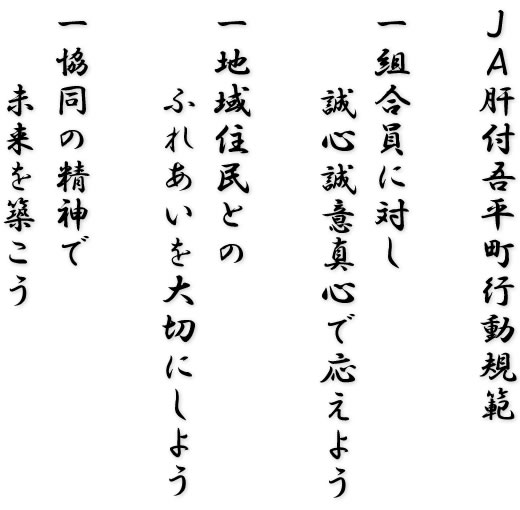 JA肝付吾平町行動規範
一組合員に対し
誠心誠意真心で応えよう
一地域住民との
ふれあいを大切にしよう
一協同の精神で
未来を築こう